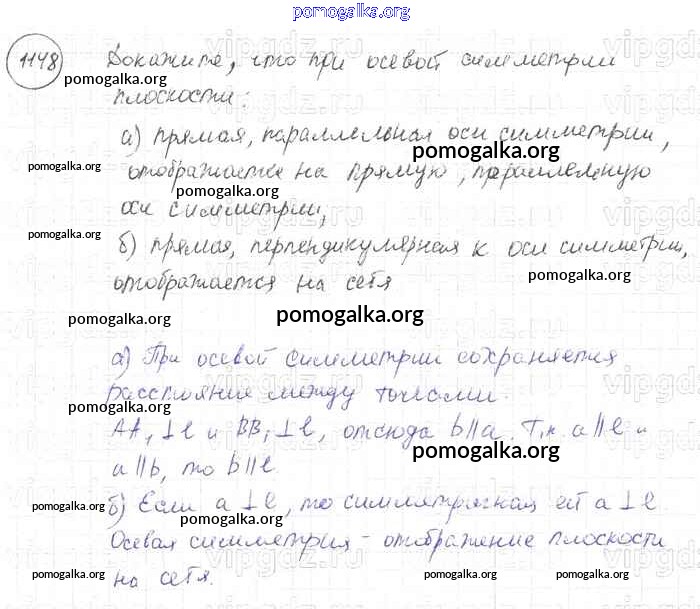 pomogalka.org
1148 Докажите, что при осевой симметрии
pomogalka.org
плоскости:
а) прямая, параллельная оси симметрии,
pomogalka.org
pomogalka.org
отображается на прямую, параллельную
pomogalka.org
оси симметрии,
pomogalka.org
б) прямая, перпендикулярная к оси симметрии,
pomogalka.org
отображается на себя
pomogalka.org
pomogalka.org
а) При осевой симметрии сохраняется
расстояние между точками.
pomogalka.org
AA₁ ⊥ l и BB₁ ⊥ l, отсюда b || a. Т.к. a || l и
pomogalka.org
a || b, то b || l.
б) Если a ⊥ l, то симметричная ей a ⊥ l
pomogalka.org
pomogalka.org
pomogalka.org
Осевая симметрия - отображение плоскости
на себя.
pomogalka.org
pomogalka.org
pomogalka.org
pomogalka.org